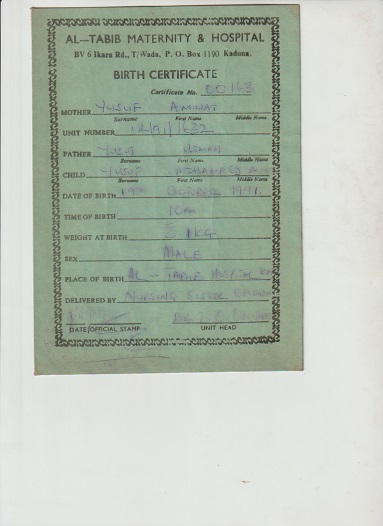 AL—TABIB MATERNITY & HOSPITAL
BV 6 Ikara Rd., T/Wada, P. O. Box 1190 Kaduna.
BIRTH CERTIFICATE
Certificate No. 00163
MOTHER YUSUF AMINAT
Surname First Name Middle Name
UNIT NUMBER
FATHER YUSUF USMAN
Surname First Name Middle Name
CHILD YUSUF MOHAMMED
Surname First Name Middle Name
DATE OF BIRTH 19th OCTOBER 1991.
TIME OF BIRTH 10am
WEIGHT AT BIRTH KG
SEX MALE
PLACE OF BIRTH AL — TABIB HOSPITAL
DELIVERED BY NURSING SISTER
DATE/OFFICIAL STAMP UNIT HEAD